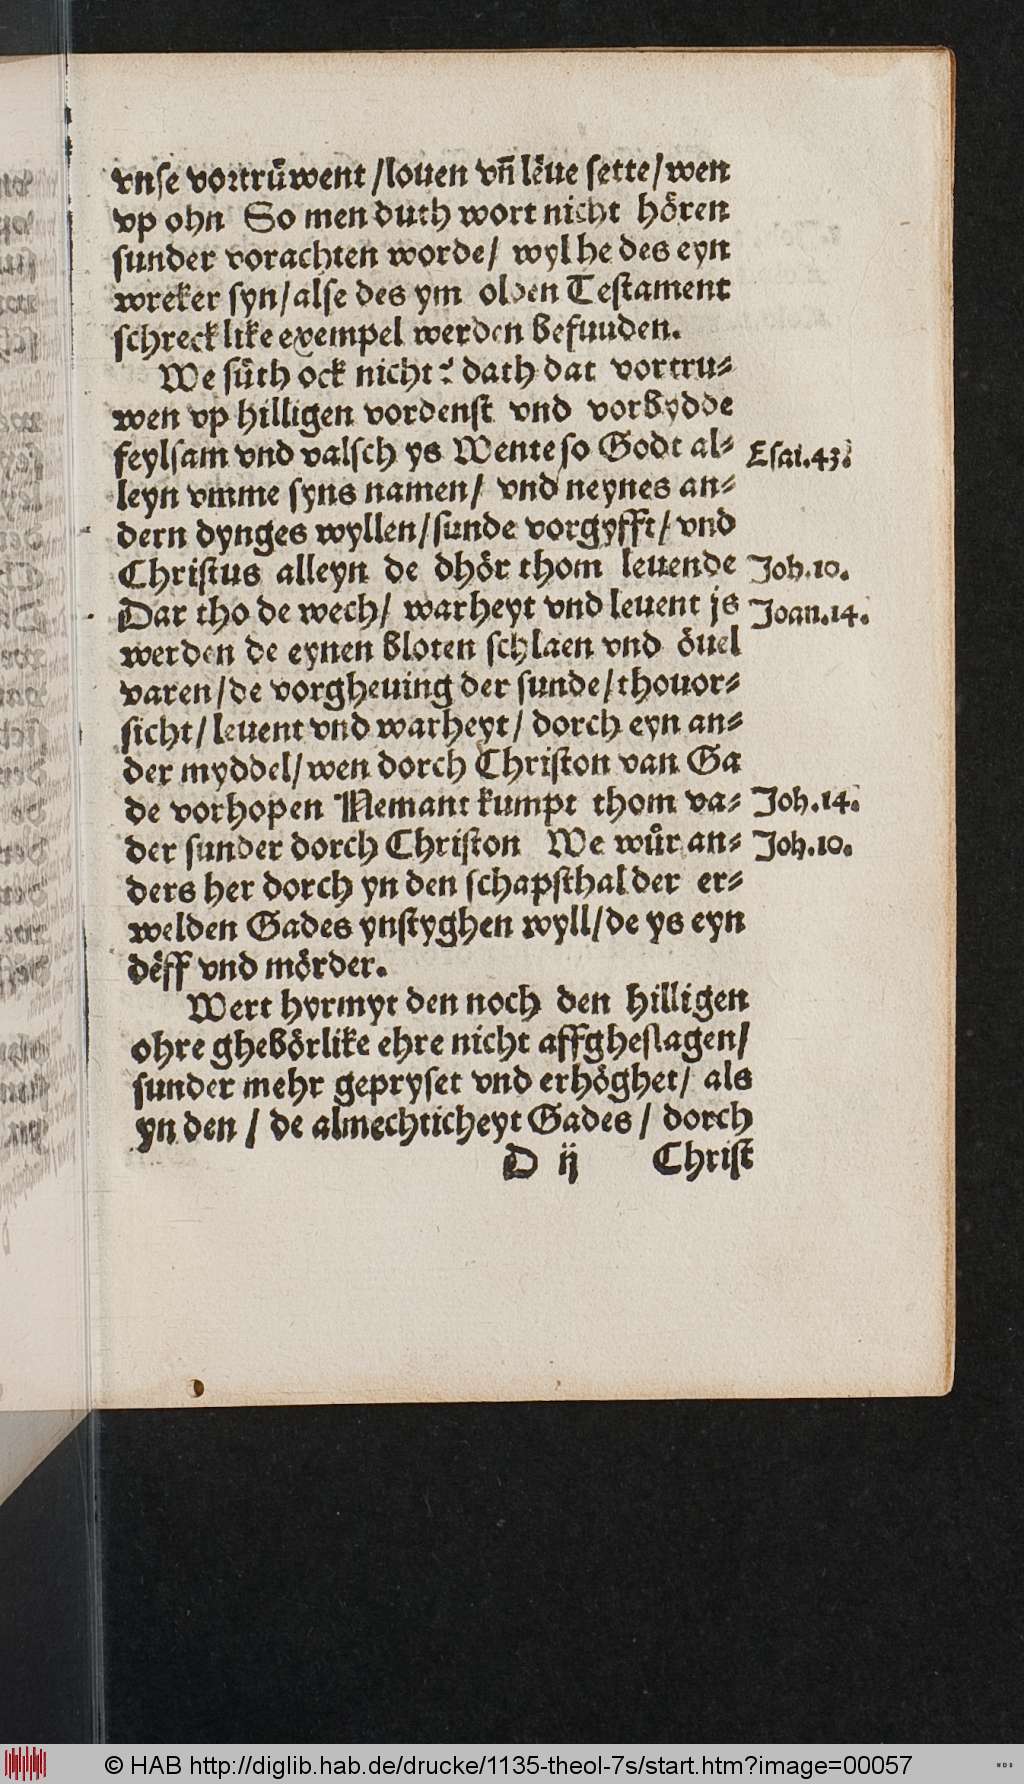 vnse vortrůwent /louen vñ lëue sette/wen
vp ohn So men duth wort nicht hören
sunder vorachten worde/ wyl he des eyn
wreker syn/alse des ym olden Testament
schrecklike exempel werden befuuden.
We sůth ock nicht? dath dat vortru⸗
wen vp hilligen vordenst vnd vorbydde
feylsam vnd valsch ys Wente so Godt al⸗
Esai.43.
leyn vmme syns namen/ vnd neynes an⸗
dern dynges wyllen/sunde vorgyfft/ vnd
Christus alleyn de dhör thom leuende
Joh.10.
Dar tho de wech/ warheyt vnd leuent js
Joan.14.
werden de eynen bloten schlaen vnd öuel
varen/de vorgheuing der sunde/thouor⸗
sicht/leuent vnd warheyt/ dorch eyn an⸗
der myddel/wen dorch Christon van Ga
de vorhopen Nemant kumpt thom va⸗
Joh.14.
der sunder dorch Christon We wůr an⸗
Joh.10.
ders her dorch yn den schapsthal der er⸗
welden Gades ynstyghen wyll/de ys eyn
dëff vnd mörder.
Wert hyrmyt den noch den hilligen
ohre ghebörlike ehre nicht affgheslagen/
sunder mehr gepryset vnd erhöghet/ als
yn den / de almechticheyt Gades / dorch
D ij Christ
© HAB http://diglib.hab.de/drucke/1135-theol-7s/start.htm?image=00057